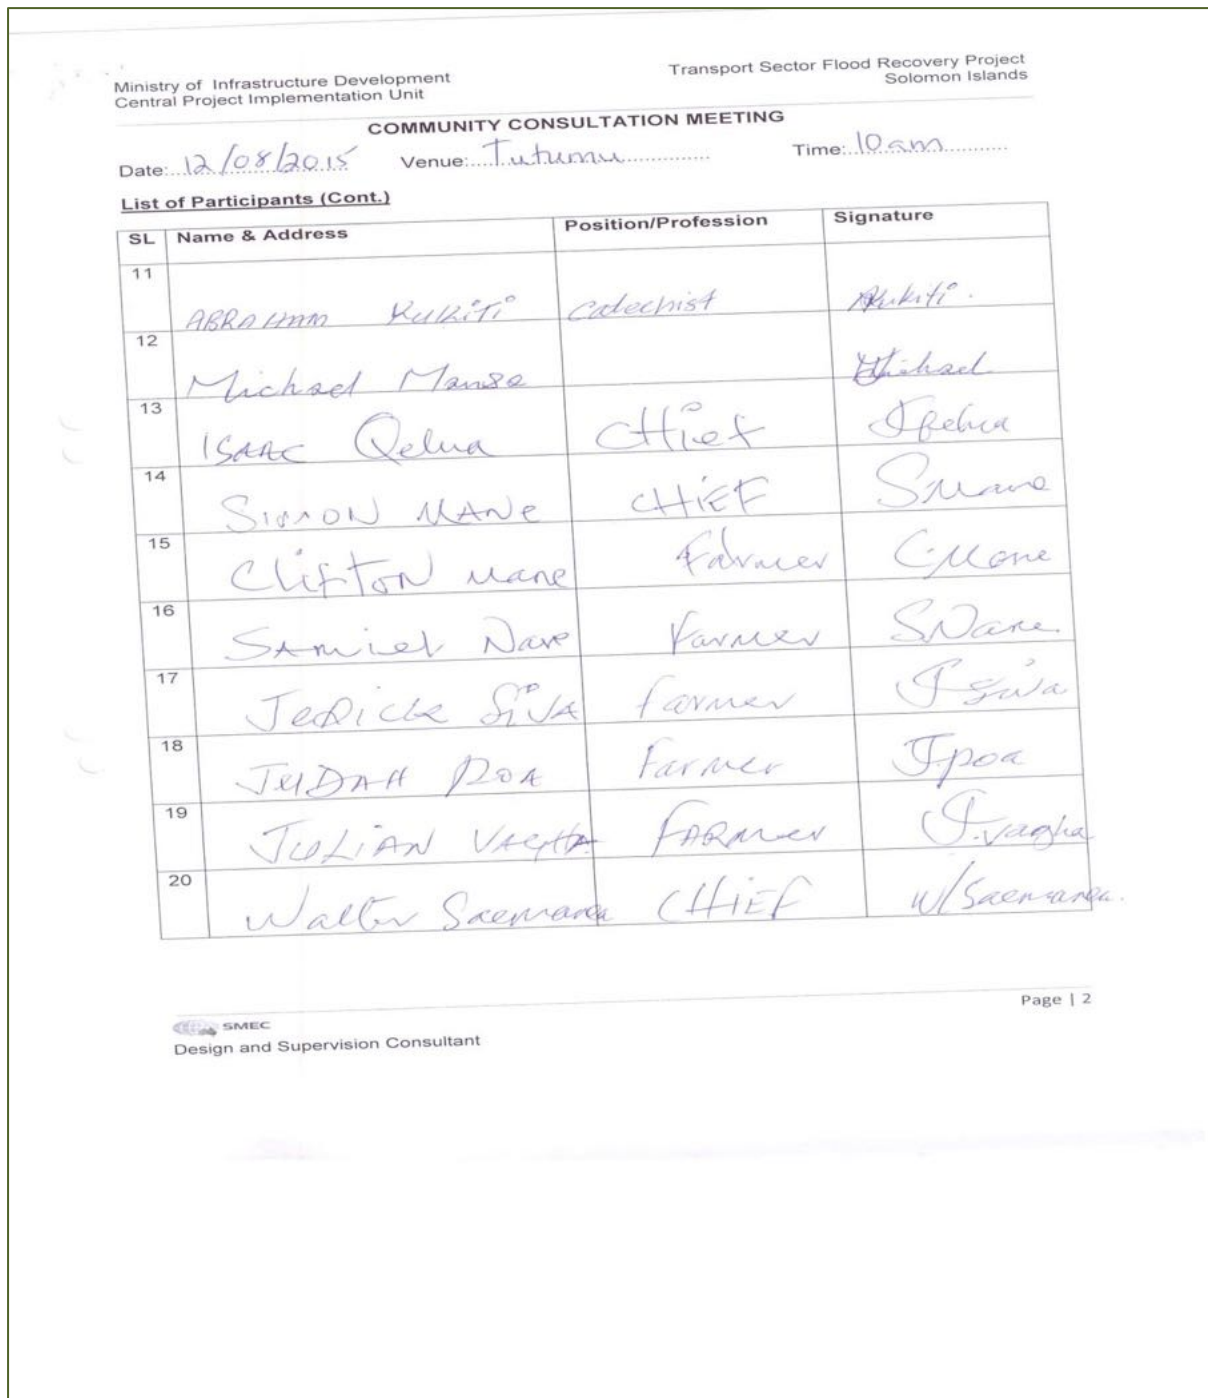 Ministry of Infrastructure Development Transport Sector Flood Recovery Project
Central Project Implementation Unit Solomon Islands
COMMUNITY CONSULTATION MEETING
Date: 12/08/2015 Venue: Tutumu Time: 10am
List of Participants (Cont.)
SL Name & Address Position/Profession Signature
11 ABRAHAM KUKiTi Catechist AKukiti.
12 Michael Michael
13 ISAAC Qelua CHief
14 SIMON MANe CHiEF SMane
15 CLifTON Mane Farmer CMane
16 SAmuel Nare Farmer SNare
17 JeRicke SiVA farmer J Siva
18 JUDAH POA Farmer J poa
19 JULiAN VAGHA FARMer J.vagha
20 Walter Saemanea CHiEF W/Saemanea.
Page | 2
SMEC
Design and Supervision Consultant